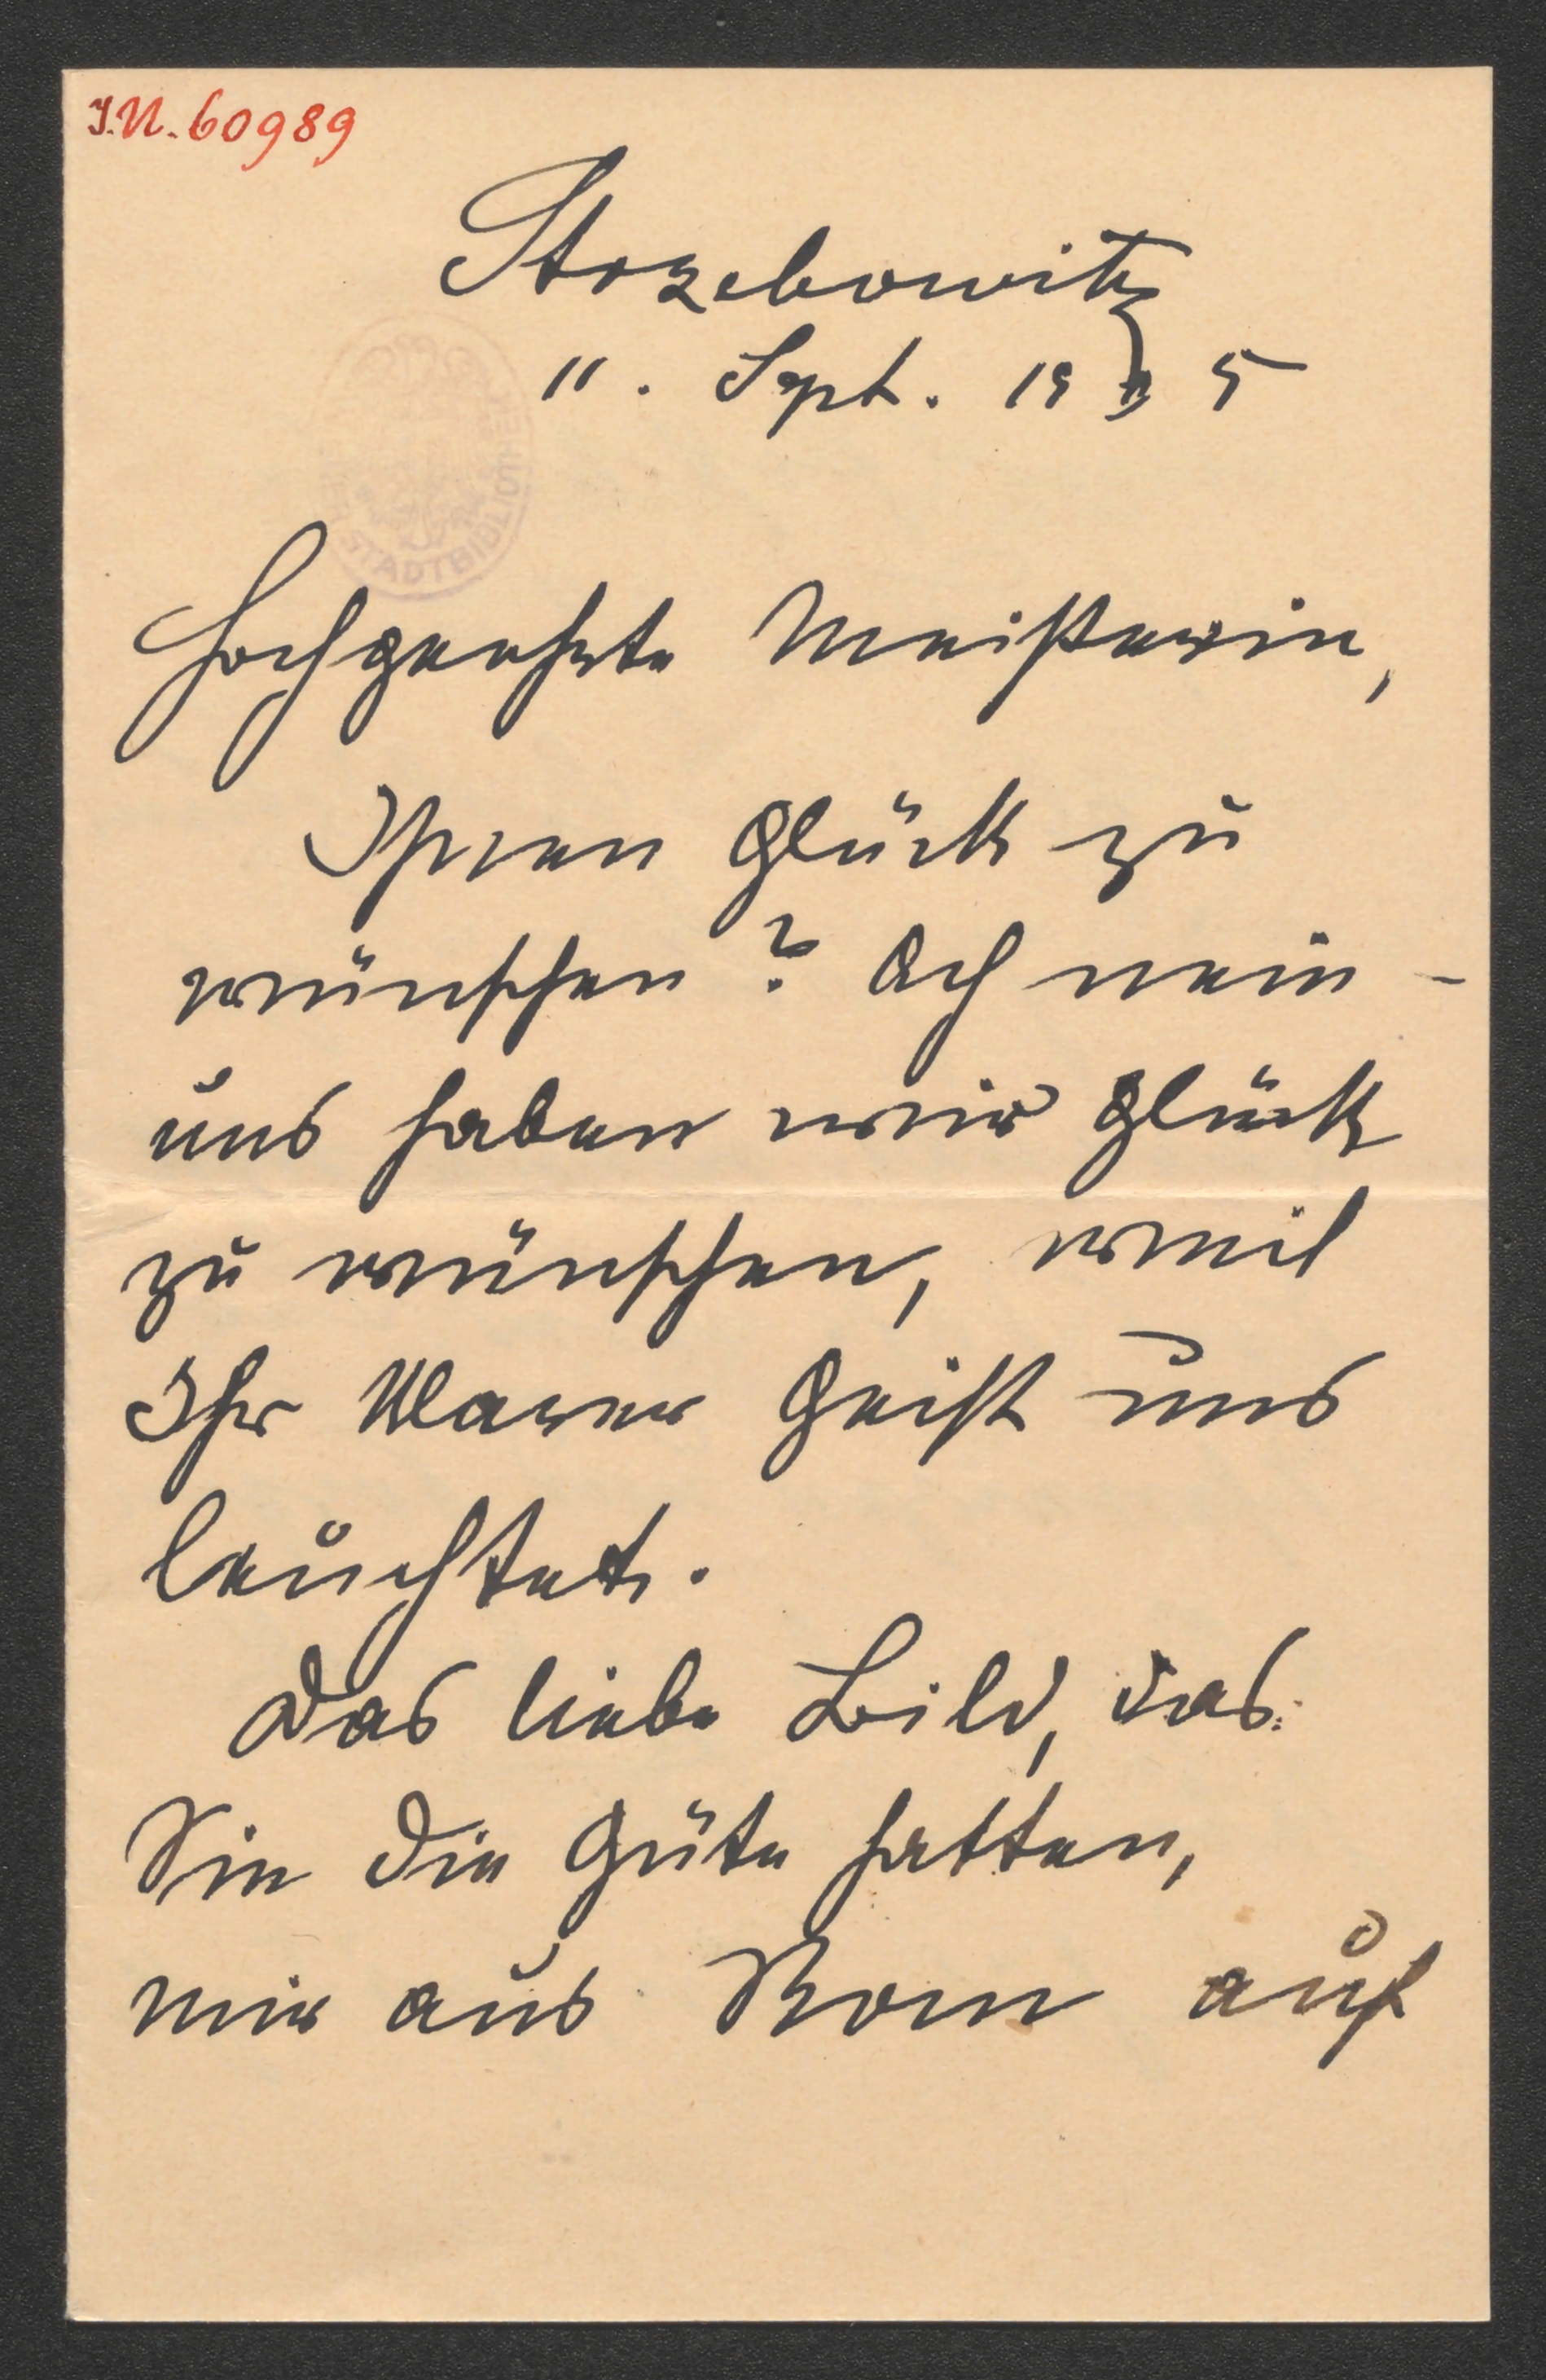 I.N. 60989
Strzebowitz
11. Sept. 1905
STADTBIBLIOTHEK
Hochgeehrte Meisterin,
Ihnen Glück zu
wünschen? Ach nein -
uns haben wir Glück
zu wünschen, weil
Ihr klarer Geist uns
leuchtet.
Das liebe Bild, das
Sie die Güte hatten,
mir aus Rom auf